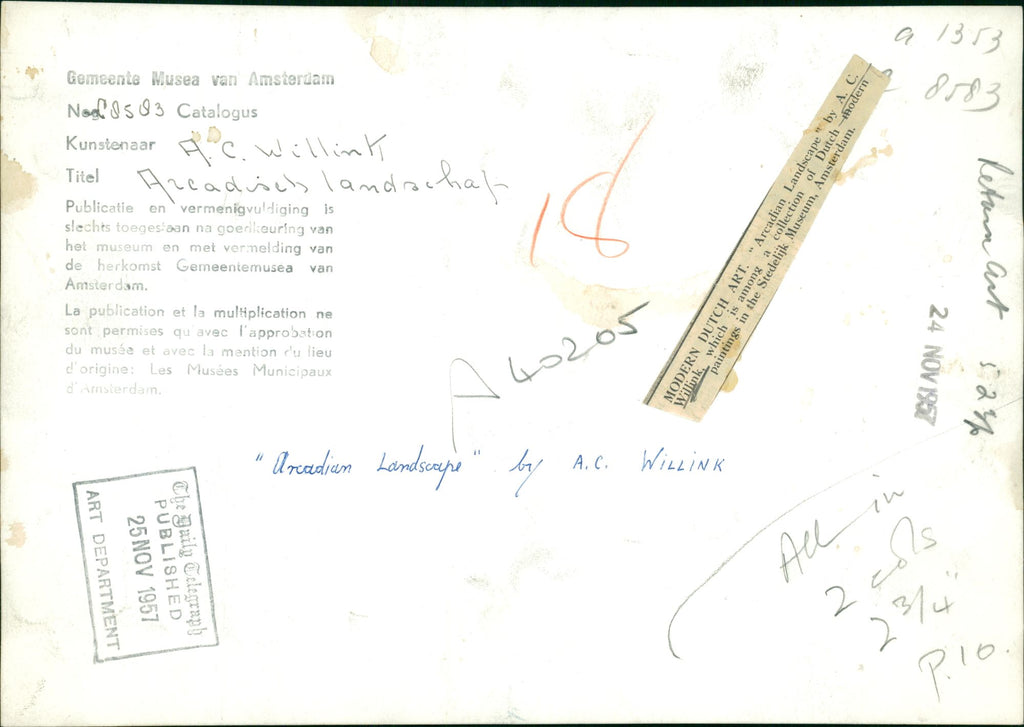 Gemeente Musea van Amsterdam
Neg. 8583 Catalogus
Kunstenaar A.C. Willink
Titel Arcadisch landschap
Publicatie en vermenigvuldiging is
slechts toegestaan na goedkeuring van
het museum en met vermelding van
de herkomst Gemeentemusea van
Amsterdam.
La publication et la multiplication ne
sont permises qu'avec l'approbation
du musée et avec la mention du lieu
d'origine: Les Musées Municipaux
d'Amsterdam.
18
a 1353
8583
MODERN DUTCH ART. "Arcadian Landscape" by A. C.
Willink, which is among a collection of Dutch modern
paintings in the Stedelijk Museum, Amsterdam.
Return Art
24 NOV 1957
A 40205
"Arcadian Landscape" by A.C. WILLINK
The Daily Telegraph
PUBLISHED
25 NOV 1957
ART DEPARTMENT
All in
2 cols
2 3/4"
P.10.